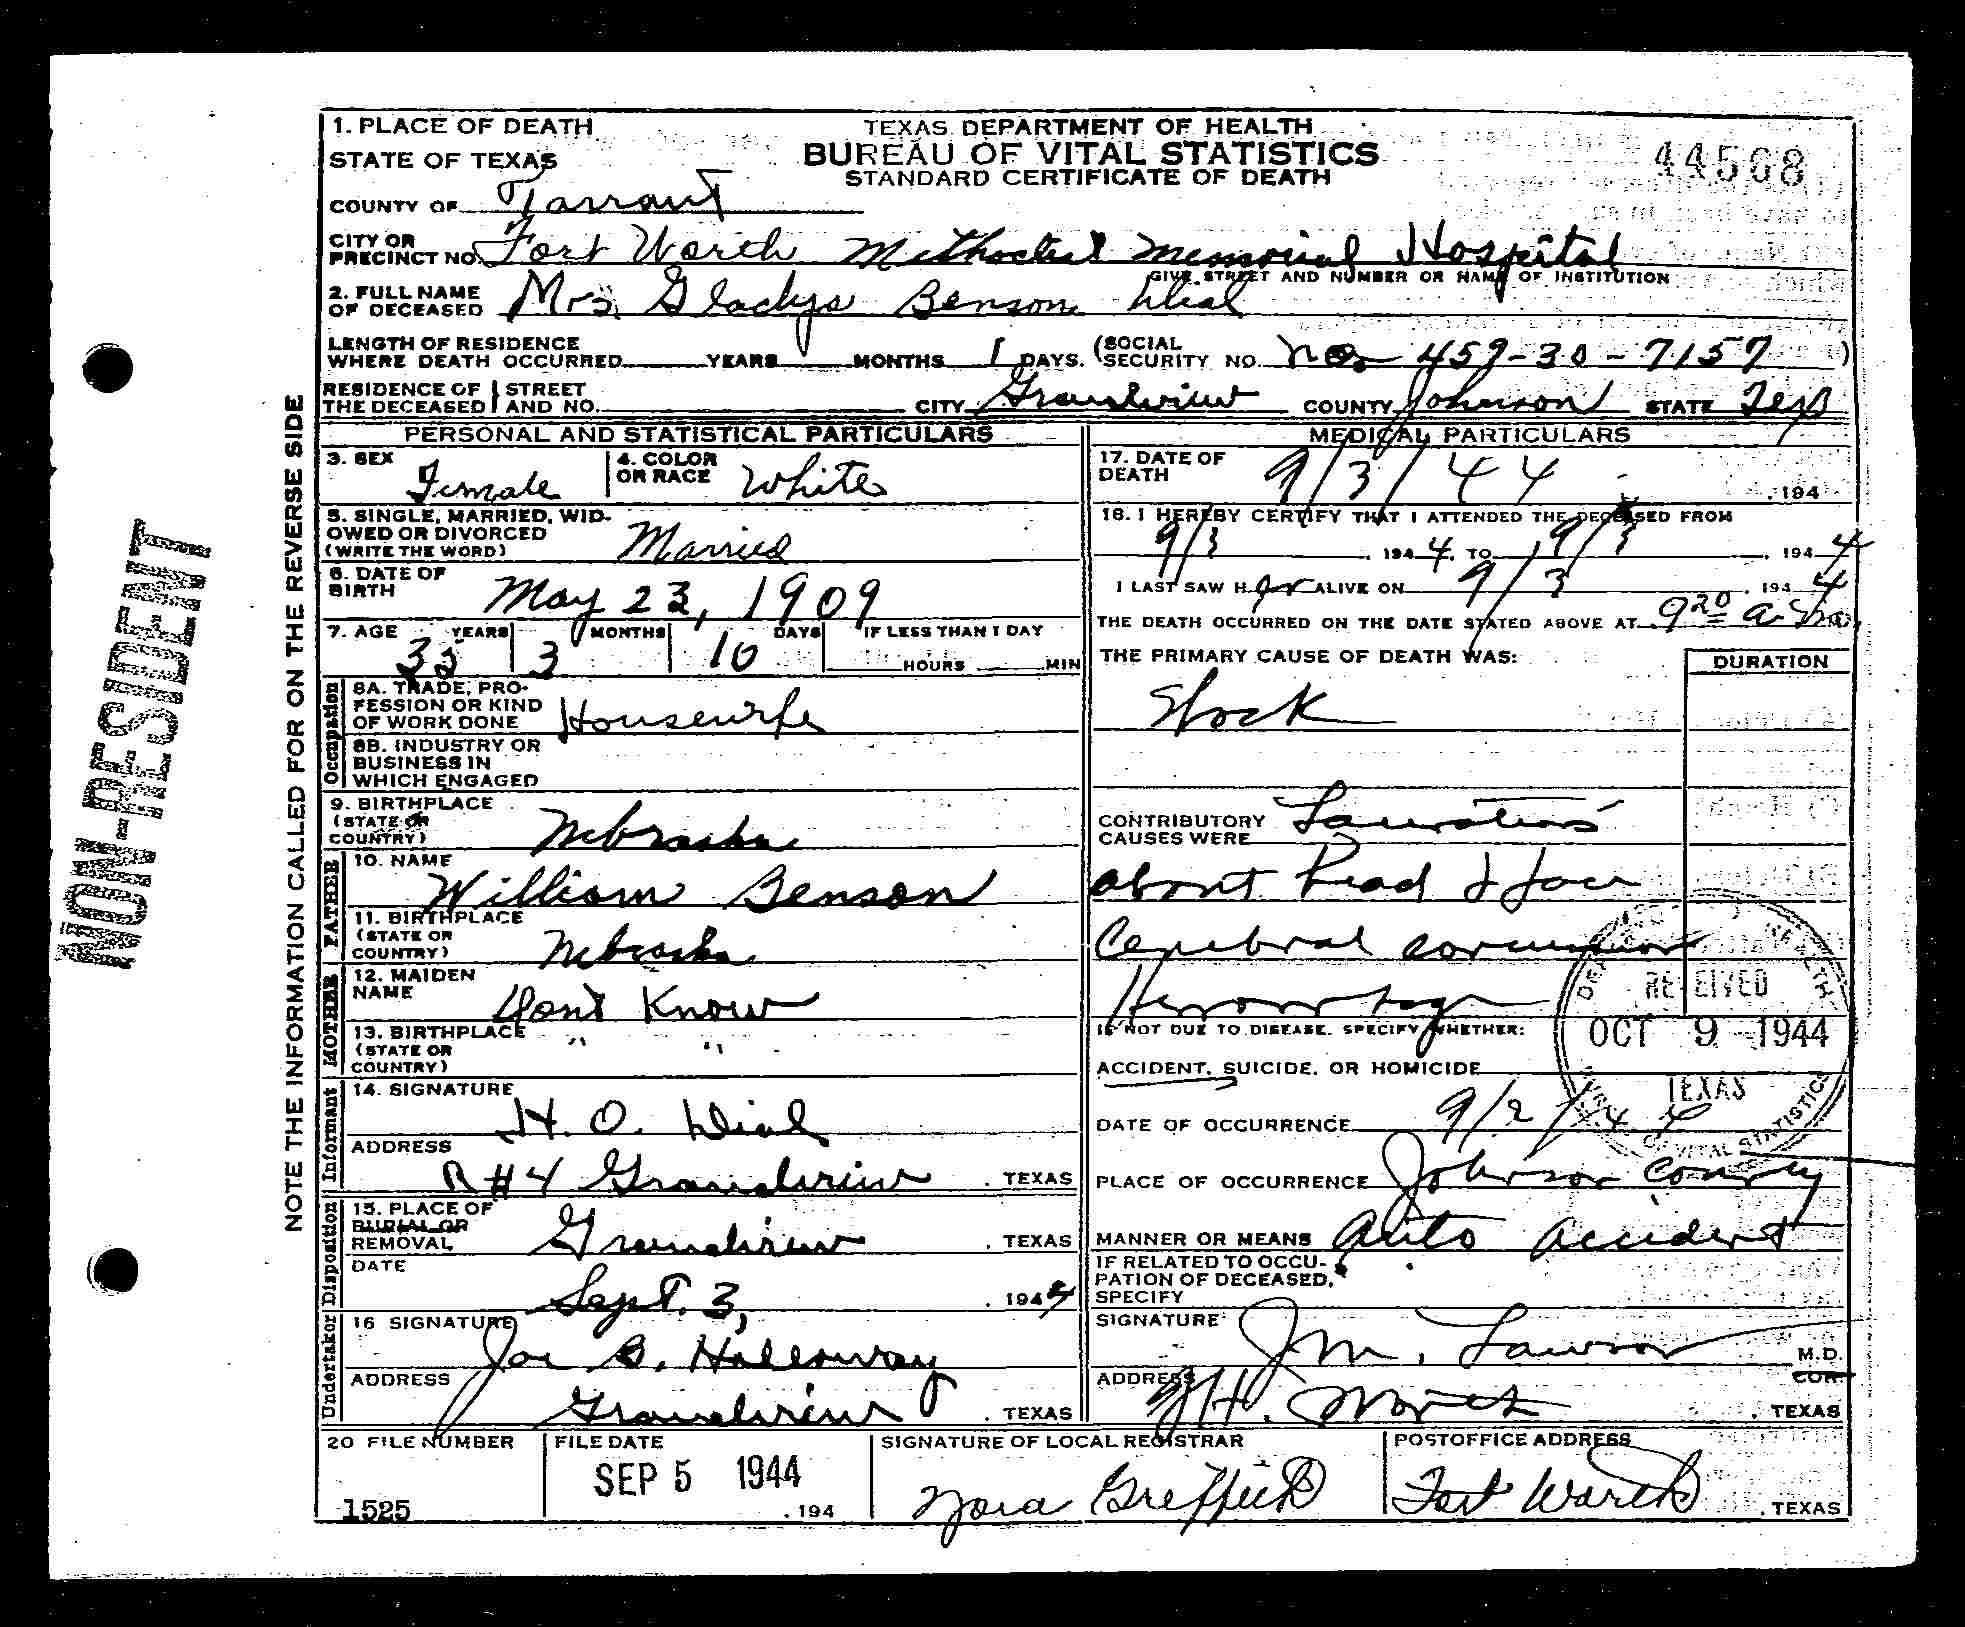 NON-RESIDENT
NOTE THE INFORMATION CALLED FOR ON THE REVERSE SIDE
TEXAS DEPARTMENT OF HEALTH
BUREAU OF VITAL STATISTICS
STANDARD CERTIFICATE OF DEATH
44568
1. PLACE OF DEATH
STATE OF TEXAS
COUNTY OF Tarrant
CITY OR PRECINCT NO. Fort Worth Methodist Memorial Hospital
GIVE STREET AND NUMBER OR NAME OF INSTITUTION
2. FULL NAME OF DECEASED Mrs. Gladys Benson Dial
LENGTH OF RESIDENCE WHERE DEATH OCCURRED YEARS MONTHS 1 DAYS. (SOCIAL SECURITY NO. No. 459-30-7157 )
RESIDENCE OF THE DECEASED STREET AND NO. CITY Grandview COUNTY Johnson STATE Tex
PERSONAL AND STATISTICAL PARTICULARS
3. SEX Female
4. COLOR OR RACE White
5. SINGLE, MARRIED, WIDOWED OR DIVORCED (WRITE THE WORD) Married
6. DATE OF BIRTH May 23, 1909
7. AGE YEARS 35 MONTHS 3 DAYS 10 IF LESS THAN 1 DAY HOURS MIN
Occupation
8A. TRADE, PROFESSION OR KIND OF WORK DONE Housewife
8B. INDUSTRY OR BUSINESS IN WHICH ENGAGED
9. BIRTHPLACE (STATE OR COUNTRY) Nebraska
FATHER
10. NAME William Benson
11. BIRTHPLACE (STATE OR COUNTRY) Nebraska
MOTHER
12. MAIDEN NAME Dont Know
13. BIRTHPLACE (STATE OR COUNTRY) " "
Informant
14. SIGNATURE H. O. Dial
ADDRESS R#4 Grandview . TEXAS
Disposition
15. PLACE OF BURIAL OR REMOVAL Grandview . TEXAS
DATE Sept. 3, . 1944
Undertaker
16 SIGNATURE Joe B. Holloway
ADDRESS Grandview . TEXAS
MEDICAL PARTICULARS
17. DATE OF DEATH 9/3/44 . 194
18. I HEREBY CERTIFY THAT I ATTENDED THE DECEASED FROM
9/3 . 1944. TO 9/3 . 1944
I LAST SAW H er ALIVE ON 9/3 . 1944
THE DEATH OCCURRED ON THE DATE STATED ABOVE AT 9 20 a.m.
THE PRIMARY CAUSE OF DEATH WAS:
DURATION
Shock
CONTRIBUTORY CAUSES WERE Lacerations
about head & face
Cerebral concussion
Hemorrhage
IF NOT DUE TO DISEASE, SPECIFY WHETHER:
ACCIDENT, SUICIDE, OR HOMICIDE
DATE OF OCCURRENCE 9/2/44
PLACE OF OCCURRENCE Johnson County
MANNER OR MEANS Auto Accident
IF RELATED TO OCCUPATION OF DECEASED, SPECIFY
SIGNATURE J.M. Lawson M.D.
COR.
ADDRESS Ft. Worth . TEXAS
RECEIVED
OCT 9 1944
TEXAS
VITAL STATISTICS
20 FILE NUMBER 1525
FILE DATE SEP 5 1944 . 194
SIGNATURE OF LOCAL REGISTRAR Nora
POSTOFFICE ADDRESS Fort Worth . TEXAS